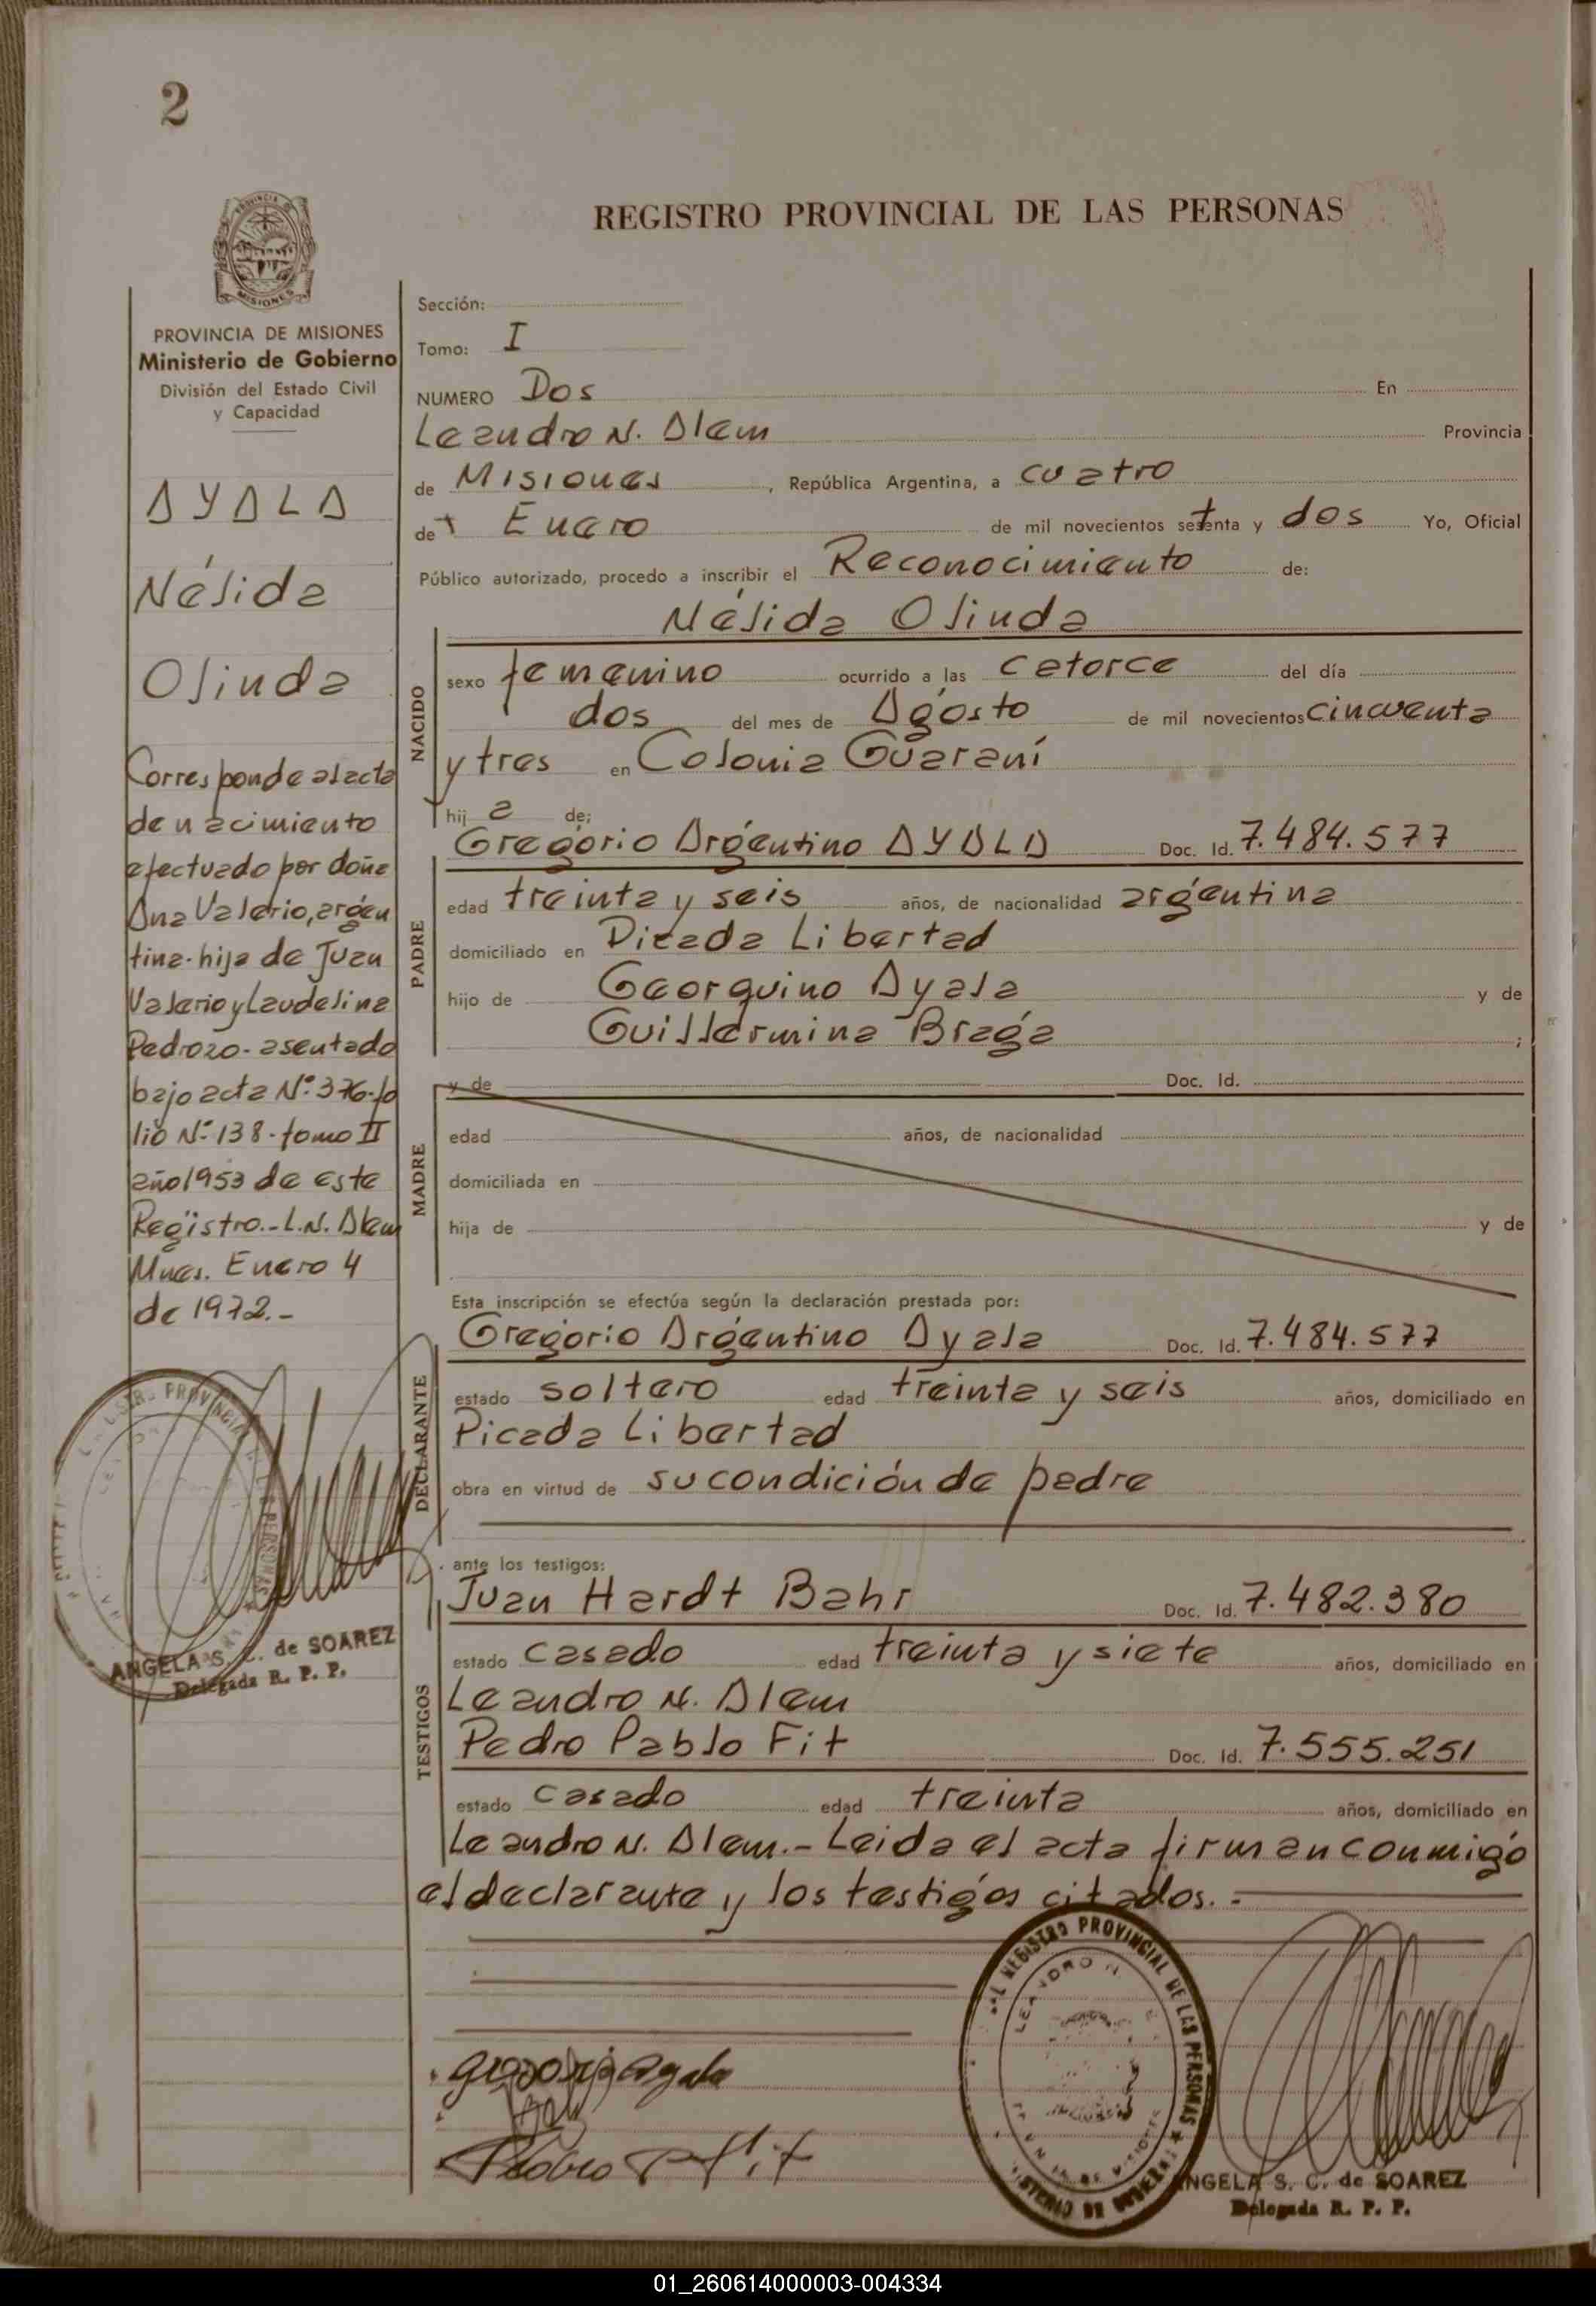 2
PROVINCIA DE
MISIONES
REGISTRO PROVINCIAL DE LAS PERSONAS
PROVINCIA DE MISIONES
Ministerio de Gobierno
División del Estado Civil
y Capacidad
AYALA
Nélida
Olinda
Corresponde al acta
de nacimiento
efectuado por doña
Ana Valerio, argen
tina-hija de Juan
Valerio y Laudelina
Pedrozo-asentado
bajo acta Nº 376-fo
lio Nº 138-tomo II
año 1953 de este
Registro.-L.N. Alem
Mnes. Enero 4
de 1972.-
ANGELA S. C. de SOAREZ
Delegada R. P. P.
Sección:
Tomo: I
NUMERO Dos En
Leandro N. Alem Provincia
de Misiones, República Argentina, a cuatro
de Enero de mil novecientos setenta y dos Yo, Oficial
Público autorizado, procedo a inscribir el Reconocimiento de:
Nélida Olinda
NACIDO
sexo femenino ocurrido a las catorce del día
dos del mes de Agosto de mil novecientos cincuenta
y tres en Colonia Guaraní
hij a de;
Gregorio Argentino AYALA Doc. Id. 7.484.577
PADRE
edad treinta y seis años, de nacionalidad argentina
domiciliado en Picada Libertad
hijo de Georquino Ayala y de
Guillermina Braga ;
MADRE
y de Doc. Id.
edad años, de nacionalidad
domiciliada en
hija de y de
Esta inscripción se efectúa según la declaración prestada por:
Gregorio Argentino Ayala Doc. Id. 7.484.577
DECLARANTE
estado soltero edad treinta y seis años, domiciliado en
Picada Libertad
obra en virtud de su condición de padre
ante los testigos:
Juan Hardt Bahr Doc. Id. 7.482.380
TESTIGOS
estado casado edad treinta y siete años, domiciliado en
Leandro N. Alem
Pedro Pablo Fit Doc. Id. 7.555.251
estado casado edad treinta años, domiciliado en
Leandro N. Alem.- Leida el acta firman conmigo
el declarante y los testigos citados.-
REGISTRO PROVINCIAL DE LAS PERSONAS
LEANDRO N.
Pedro P Fit
ANGELA S. C. de SOAREZ
Delegada R. P. P.
01_260614000003-004334